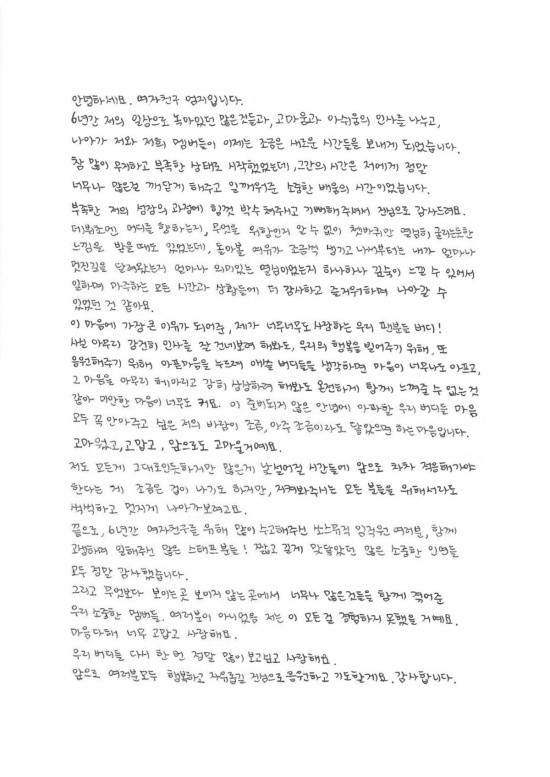 안녕하세요. 여자친구 엄지입니다.
6년간 저의 일상으로 녹아있던 많은것들과, 고마움과 아쉬움의 인사를 나누고,
나아가 저와 저희 멤버들이 이제는 조금은 새로운 시간들을 보내게 되었습니다.
참 많이 무지하고 부족한 상태로 시작했었는데, 그간의 시간은 저에게 정말
너무나 많은걸 깨닫게 해주고 일깨워준 소중한 배움의 시간이었습니다.
부족한 저의 성장의 과정에 힘껏 박수 쳐주시고 기뻐해 주셔서 진심으로 감사드려요.
데뷔초엔 어디를 향하는지, 무엇을 위함인지 알 수 없이 쳇바퀴만 열심히 굴리는듯한
느낌을 받을 때도 있었는데, 돌아볼 여유가 조금씩 생기고 나서부터는 내가 얼마나
멋진길을 달려왔는지 얼마나 의미있는 열심이었는지 하나하나 깊숙이 느낄 수 있어서
일하며 마주하는 모든 시간과 상황들에 더 감사하고 즐거워하며 나아갈 수
있었던 것 같아요.
이 마음에 가장 큰 이유가 되어준, 제가 너무너무도 사랑하는 우리 팬분들 버디!
사실 아무리 감히 인사를 잘 건네보려 해봐도, 우리의 행복을 빌어주기 위해, 또
응원해주기 위해 아픈마음을 누르며 애쓸 버디들을 생각하면 마음이 너무나 아프고,
그 마음을 아무리 헤아리고 감히 상상하려 해봐도 온전하게 함께 느껴줄 수 없는것
같아 미안한 마음이 너무도 커요. 이 준비되지 않은 안녕에 아파할 우리 버디들 마음
모두 꼭 안아주고 싶은 저의 바람이 조금, 아주 조금이라도 닿았으면 하는 마음입니다.
고마웠고, 고맙고, 앞으로도 고마울거예요.
저도 모든게 그대로인듯하지만 많은게 낯설어질 시간들에 앞으로 차차 적응해가야
한다는 게 조금은 겁이 나기도 하지만, 지켜봐주시는 모든 분들을 위해서라도
씩씩하고 멋지게 나아가보려고요.
끝으로, 6년간 여자친구를 위해 많이 수고해주신 쏘스뮤직 임직원 여러분, 함께
고생하며 일해주신 많은 스태프분들! 짧고 길게 맞닿았던 많은 소중한 인연들
모두 정말 감사했습니다.
그리고 무엇보다 보이는곳 보이지 않는곳에서 너무나 많은것들을 함께 겪어준
우리 소중한 멤버들. 여러분이 아니었음 저는 이 모든걸 경험하지 못했을 거예요.
마음다해 너무 고맙고 사랑해요.
우리 버디들 다시 한 번 정말 많이 보고싶고 사랑해요.
앞으로 여러분모두 행복하고 자유롭길 진심으로 응원하고 기도할게요. 감사합니다.